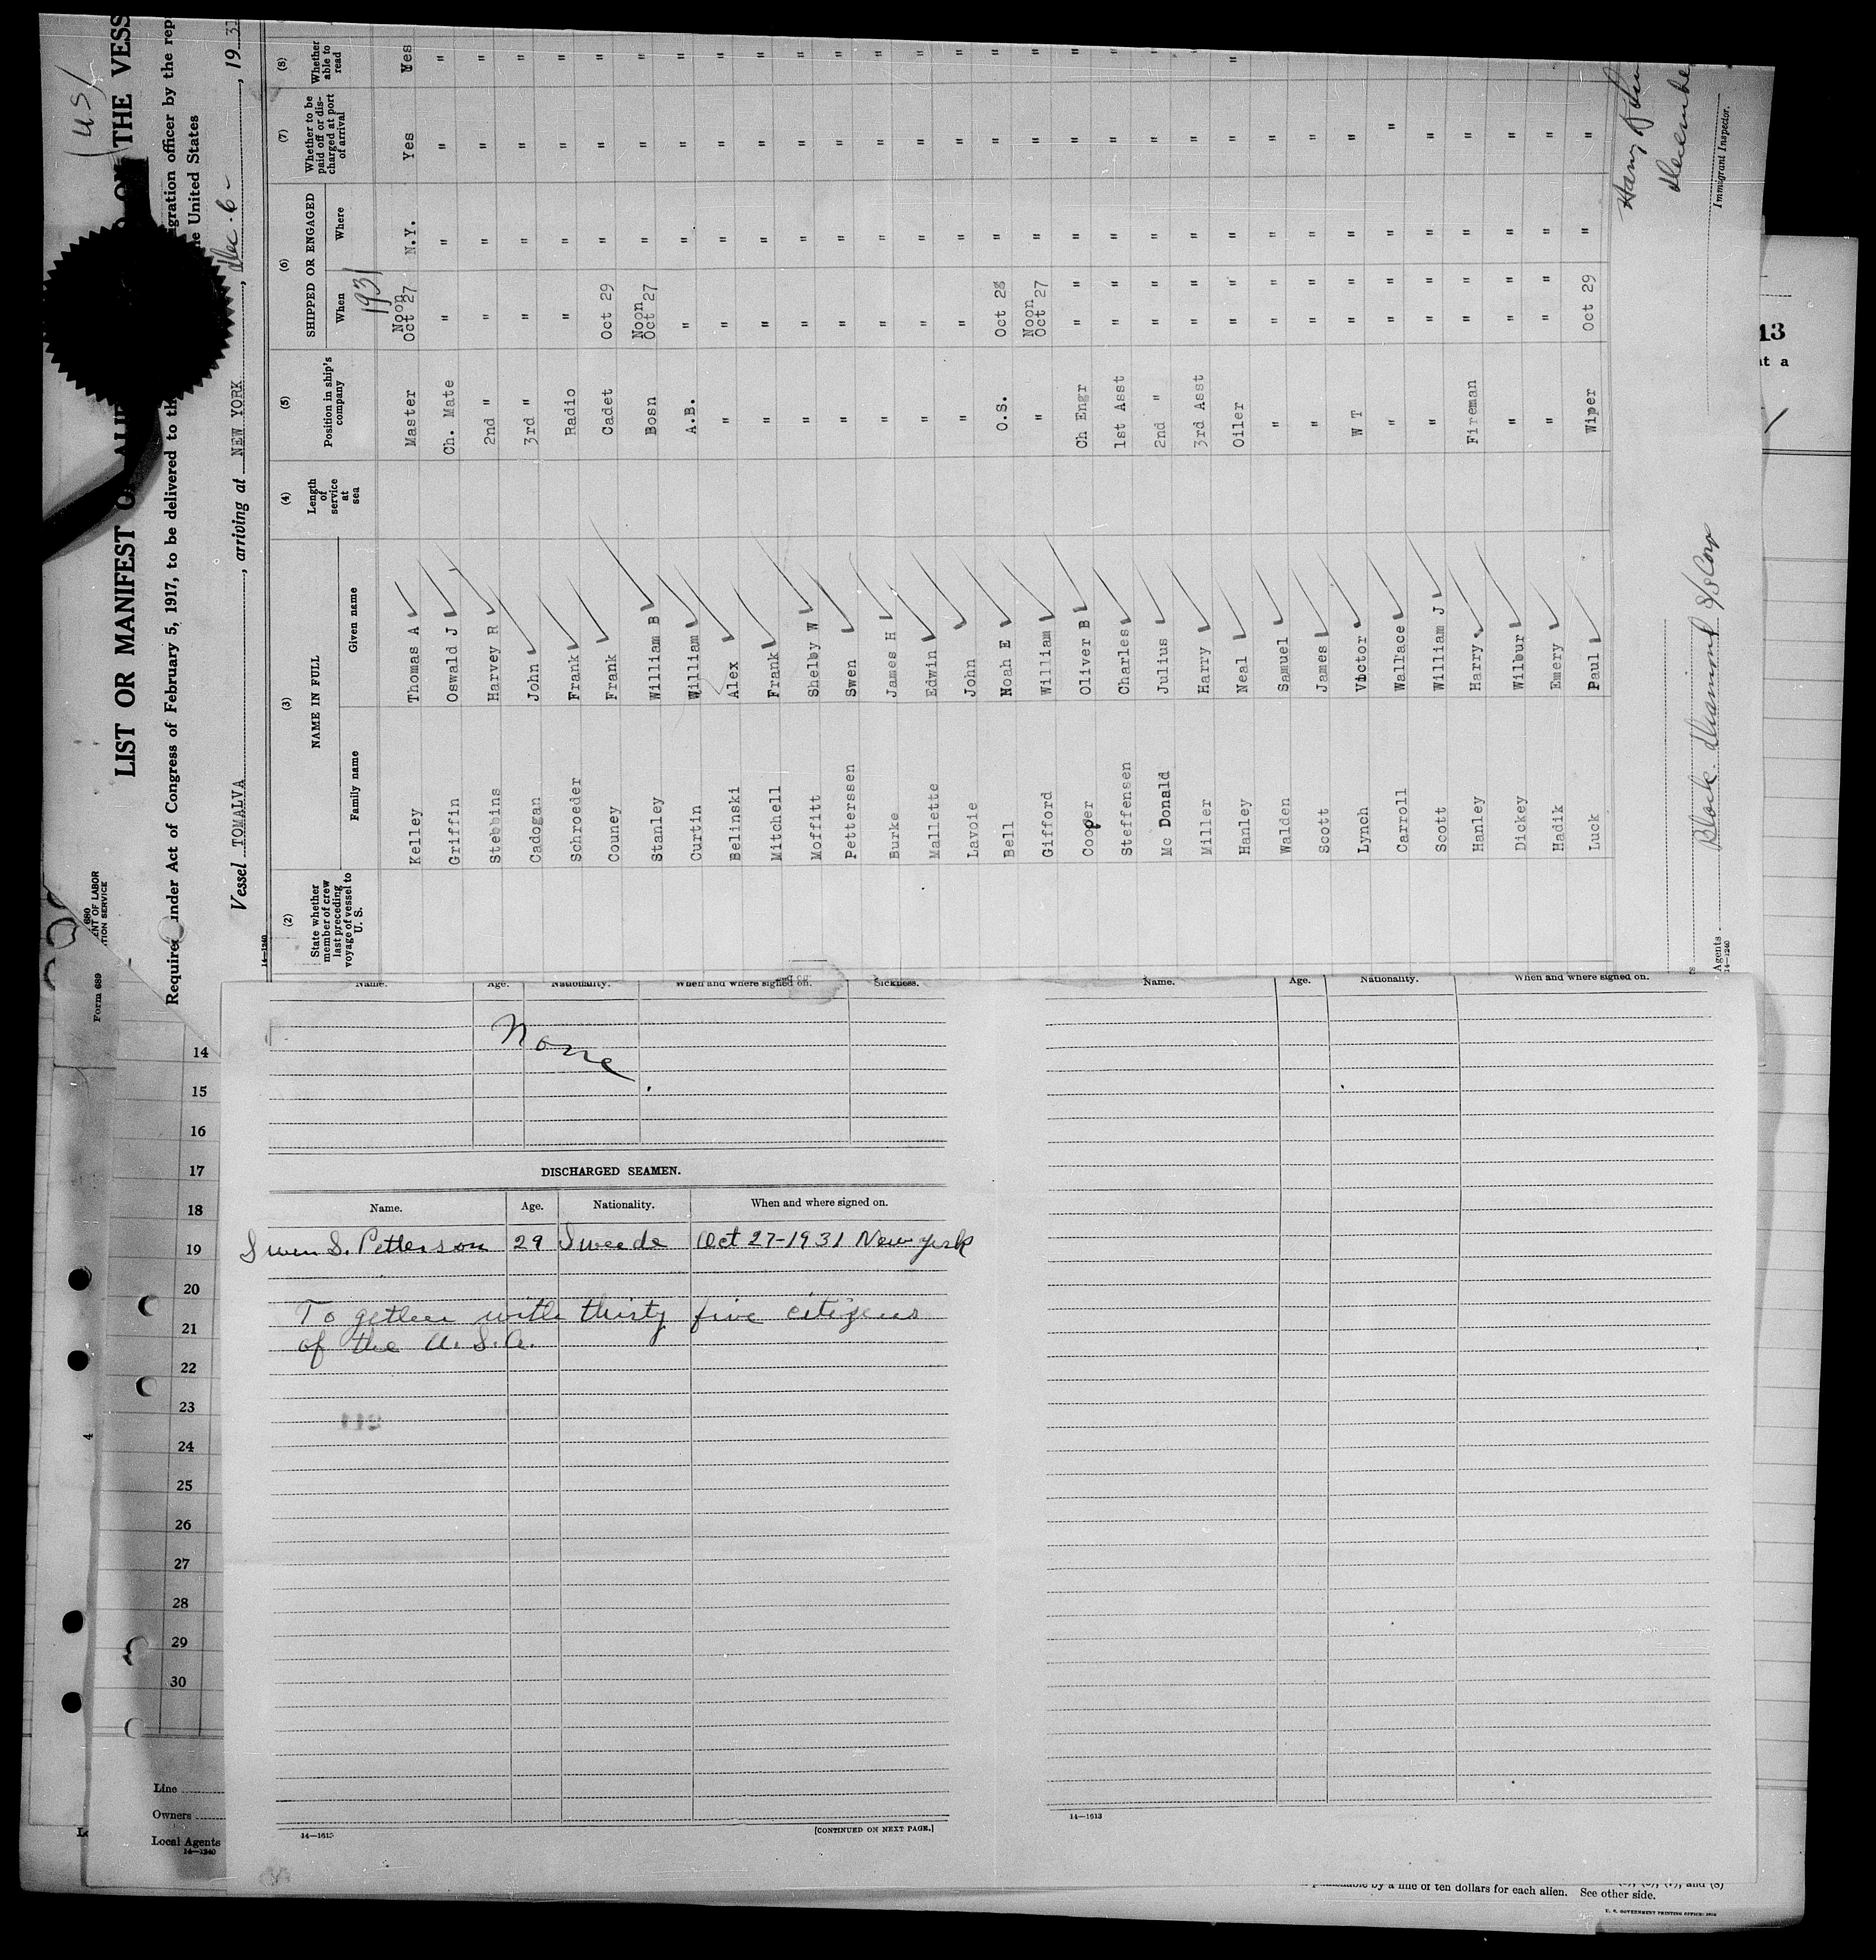 (US)
LIST OR MANIFEST O ALIE ON THE VESS
Required under Act of Congress of February 5, 1917, to be delivered to th igration officer by the rep
e United States
Vessel TOMALVA, arriving at NEW YORK, Dec. 6-, 1931
14—1240
(2) (3) (4) (5) (6) (7) (8)
State whether member of crew last preceding voyage of vessel to U. S.
NAME IN FULL
Family name Given name
Length of service at sea
Position in ship's company
SHIPPED OR ENGAGED
When Where
Whether to be paid off or discharged at port of arrival
Whether able to read
1931
Kelley Thomas A Master Noon Oct 27 N.Y. Yes Yes
Griffin Oswald J Ch. Mate " " " "
Stebbins Harvey R 2nd " " " " "
Cadogan John 3rd " " " " "
Schroeder Frank Radio " " " "
Couney Frank Cadet Oct 29 " " "
Stanley William B Bosn Noon Oct 27 " " "
Curtin William A.B. " " " "
Belinski Alex " " " " "
Mitchell Frank " " " " "
Moffitt Shelby W " " " " "
Petterssen Swen " " " " "
Burke James H " " " " "
Mallette Edwin " " " " "
Lavoie John " " " " "
Bell Noah E O.S. Oct 28 " " "
Gifford William " Noon Oct 27 " " "
Cooper Oliver B Ch Engr " " " " "
Steffensen Charles 1st Asst " " " " "
Mc Donald Julius 2nd " " " " " "
Miller Harry 3rd Asst " " " " "
Hanley Neal Oiler " " " " "
Walden Samuel " " " " "
Scott James " " " " "
Lynch Victor W T " " " "
Carroll Wallace " " " " "
Scott William J " " " " "
Hanley Harry Fireman " " " "
Dickey Wilbur " " " " "
Hadik Emery " " " " "
Luck Paul Wiper Oct 29 " "
Harry
December
Immigrant Inspector.
Black Diamond S/S Corp
Agents
14—1240
680
ENT OF LABOR
TION SERVICE
Form 689
13
at a
Name. Age. Nationality. When and where signed on. Sickness.
None
DISCHARGED SEAMEN.
Name. Age. Nationality. When and where signed on.
Swen S. Petterson 29 Sweede Oct 27-1931 New york
To gether with thirty five citizens
of the U.S.A.
14—1613
[CONTINUED ON NEXT PAGE.]
Name. Age. Nationality. When and where signed on.
14—1613
14
15
16
17
18
19
20
21
22
23
24
25
26
27
28
29
30
4
Line
Owners
Local Agents
14—1240
by a fine of ten dollars for each alien. See other side.
U. S. GOVERNMENT PRINTING OFFICE